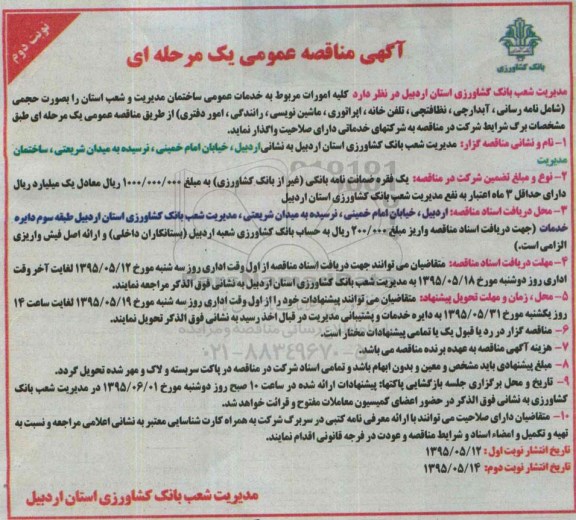 نوبت دوم
بانک کشاورزی
آگهی مناقصه عمومی یک مرحله ای
مدیریت شعب بانک کشاورزی استان اردبیل در نظر دارد کلیه امورات مربوط به خدمات عمومی ساختمان مدیریت و شعب استان را بصورت حجمی
(شامل نامه رسانی ، آبدارچی ، نظافتچی ، تلفن خانه ، اپراتوری ، ماشین نویسی ، رانندگی ، امور دفتری) از طریق مناقصه عمومی یک مرحله ای طبق
مشخصات برگ شرایط شرکت در مناقصه به شرکتهای خدماتی دارای صلاحیت واگذار نماید.
۱- نام و نشانی مناقصه گزار: مدیریت شعب بانک کشاورزی استان اردبیل به نشانی اردبیل ، خیابان امام خمینی ، نرسیده به میدان شریعتی ، ساختمان
مدیریت
۲- نوع و مبلغ تضمین شرکت در مناقصه: یک فقره ضمانت نامه بانکی (غیر از بانک کشاورزی) به مبلغ ۱۰۰۰/۰۰۰/۰۰۰ ریال معادل یک میلیارد ریال
دارای حداقل ۳ ماه اعتبار به نفع مدیریت شعب بانک کشاورزی استان اردبیل
۳- محل دریافت اسناد مناقصه: اردبیل ، خیابان امام خمینی ، نرسیده به میدان شریعتی ، مدیریت شعب بانک کشاورزی استان اردبیل طبقه سوم دایره
خدمات (جهت دریافت اسناد مناقصه واریز مبلغ ۲۰۰/۰۰۰ ریال به حساب بانک کشاورزی شعبه اردبیل (بستانکاران داخلی) و ارائه اصل فیش واریزی
الزامی است.)
۴- مهلت دریافت اسناد مناقصه: متقاضیان می توانند جهت دریافت اسناد مناقصه از اول وقت اداری روز سه شنبه مورخ ۱۳۹۵/۰۵/۱۲ لغایت آخر وقت
اداری روز دوشنبه مورخ ۱۳۹۵/۰۵/۱۸ به مدیریت شعب بانک کشاورزی استان اردبیل به نشانی فوق الذکر مراجعه نمایند.
۵- محل ، زمان و مهلت تحویل پیشنهاد: متقاضیان می توانند پیشنهادات خود را از اول وقت اداری روز سه شنبه مورخ ۱۳۹۵/۰۵/۱۹ لغایت ساعت ۱۴
روز یکشنبه مورخ ۱۳۹۵/۰۵/۳۱ به دایره خدمات و پشتیبانی مدیریت در قبال اخذ رسید به نشانی فوق الذکر تحویل نمایند.
۶- مناقصه گزار در رد یا قبول یک یا تمامی پیشنهادات مختار است.
۷- هزینه آگهی مناقصه به عهده برنده مناقصه می باشد.
۸- مبلغ پیشنهادی باید مشخص و معین و بدون ابهام باشد و تمامی اسناد شرکت در مناقصه در پاکت سربسته و لاک و مهر شده تحویل گردد.
۹- تاریخ و محل برگزاری جلسه بازگشایی پاکتها: پیشنهادات ارائه شده در ساعت ۱۰ صبح روز دوشنبه مورخ ۱۳۹۵/۰۶/۰۱ در مدیریت شعب بانک
کشاورزی به نشانی فوق الذکر در حضور اعضای کمیسیون معاملات مفتوح و قرائت خواهد شد.
۱۰- متقاضیان دارای صلاحیت می توانند با ارائه معرفی نامه کتبی در سربرگ شرکت به همراه کارت شناسایی معتبر به نشانی اعلامی مراجعه و نسبت به
تهیه و تکمیل و امضاء اسناد و شرایط مناقصه و عودت در فرجه قانونی اقدام نمایند.
تاریخ انتشار نوبت اول : ۱۳۹۵/۰۵/۱۲
تاریخ انتشار نوبت دوم: ۱۳۹۵/۰۵/۱۴
مدیریت شعب بانک کشاورزی استان اردبیل
۰۲۱-۸۸۳۴۹۶۷۰